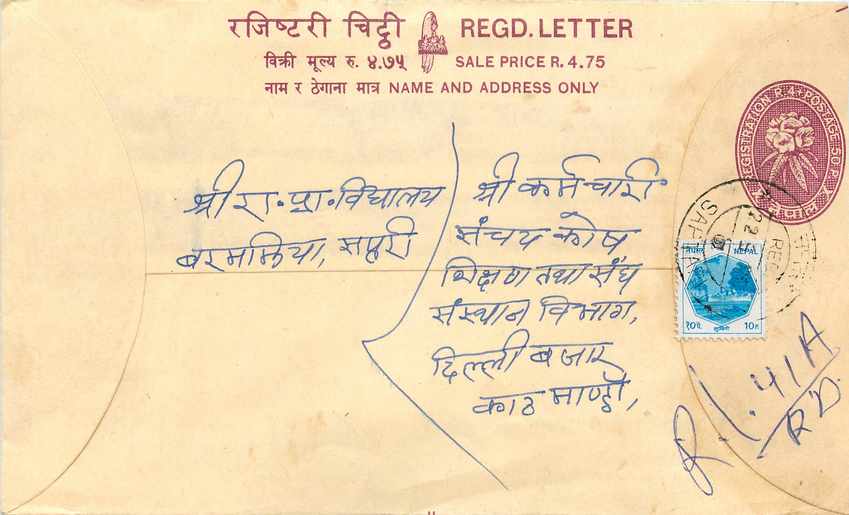 रजिष्टरी चिट्ठी REGD. LETTER
विक्री मूल्य रु. ४.७५ SALE PRICE R. 4.75
नाम र ठेगाना मात्र NAME AND ADDRESS ONLY
REGISTRATION R.4 + POSTAGE 50 P.
श्री रा. प्रा. विद्यालय
बरमझिया, सप्तरी
श्री कर्मचारी
संचय कोष
शिक्षण तथा संघ
संस्थान विभाग,
दिल्ली बजार
काठमाण्डौ,
REG
नेपाल NEPAL
१०पै. 10P
R.L. 41A
RD.